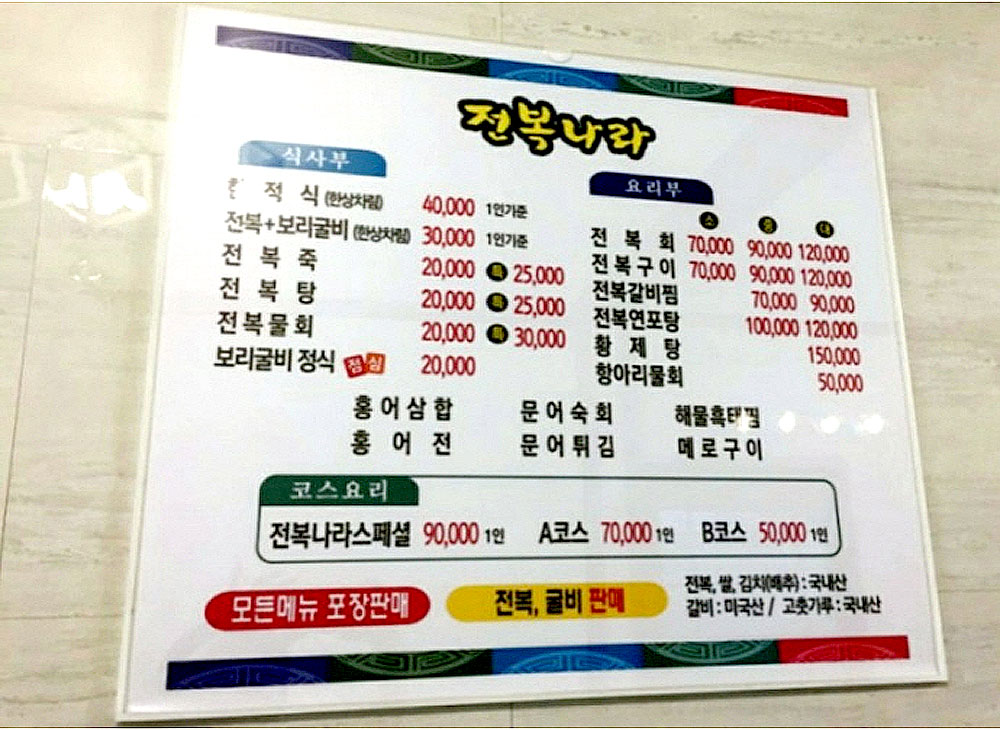 전복나라
식사부
정식 (한상차림) 40,000 1인기준
전복+보리굴비 (한상차림) 30,000 1인기준
전복죽 20,000 특 25,000
전복탕 20,000 특 25,000
전복물회 20,000 특 30,000
보리굴비 정식 점심 20,000
요리부
소 중 대
전복회 70,000 90,000 120,000
전복구이 70,000 90,000 120,000
전복갈비찜 70,000 90,000
전복연포탕 100,000 120,000
황제탕 150,000
항아리물회 50,000
홍어삼합 문어숙회 해물흑태찜
홍어전 문어튀김 메로구이
코스요리
전복나라스페셜 90,000 1인 A코스 70,000 1인 B코스 50,000 1인
모든메뉴 포장판매
전복, 굴비 판매
전복, 쌀, 김치(배추) : 국내산
갈비 : 미국산 / 고춧가루 : 국내산